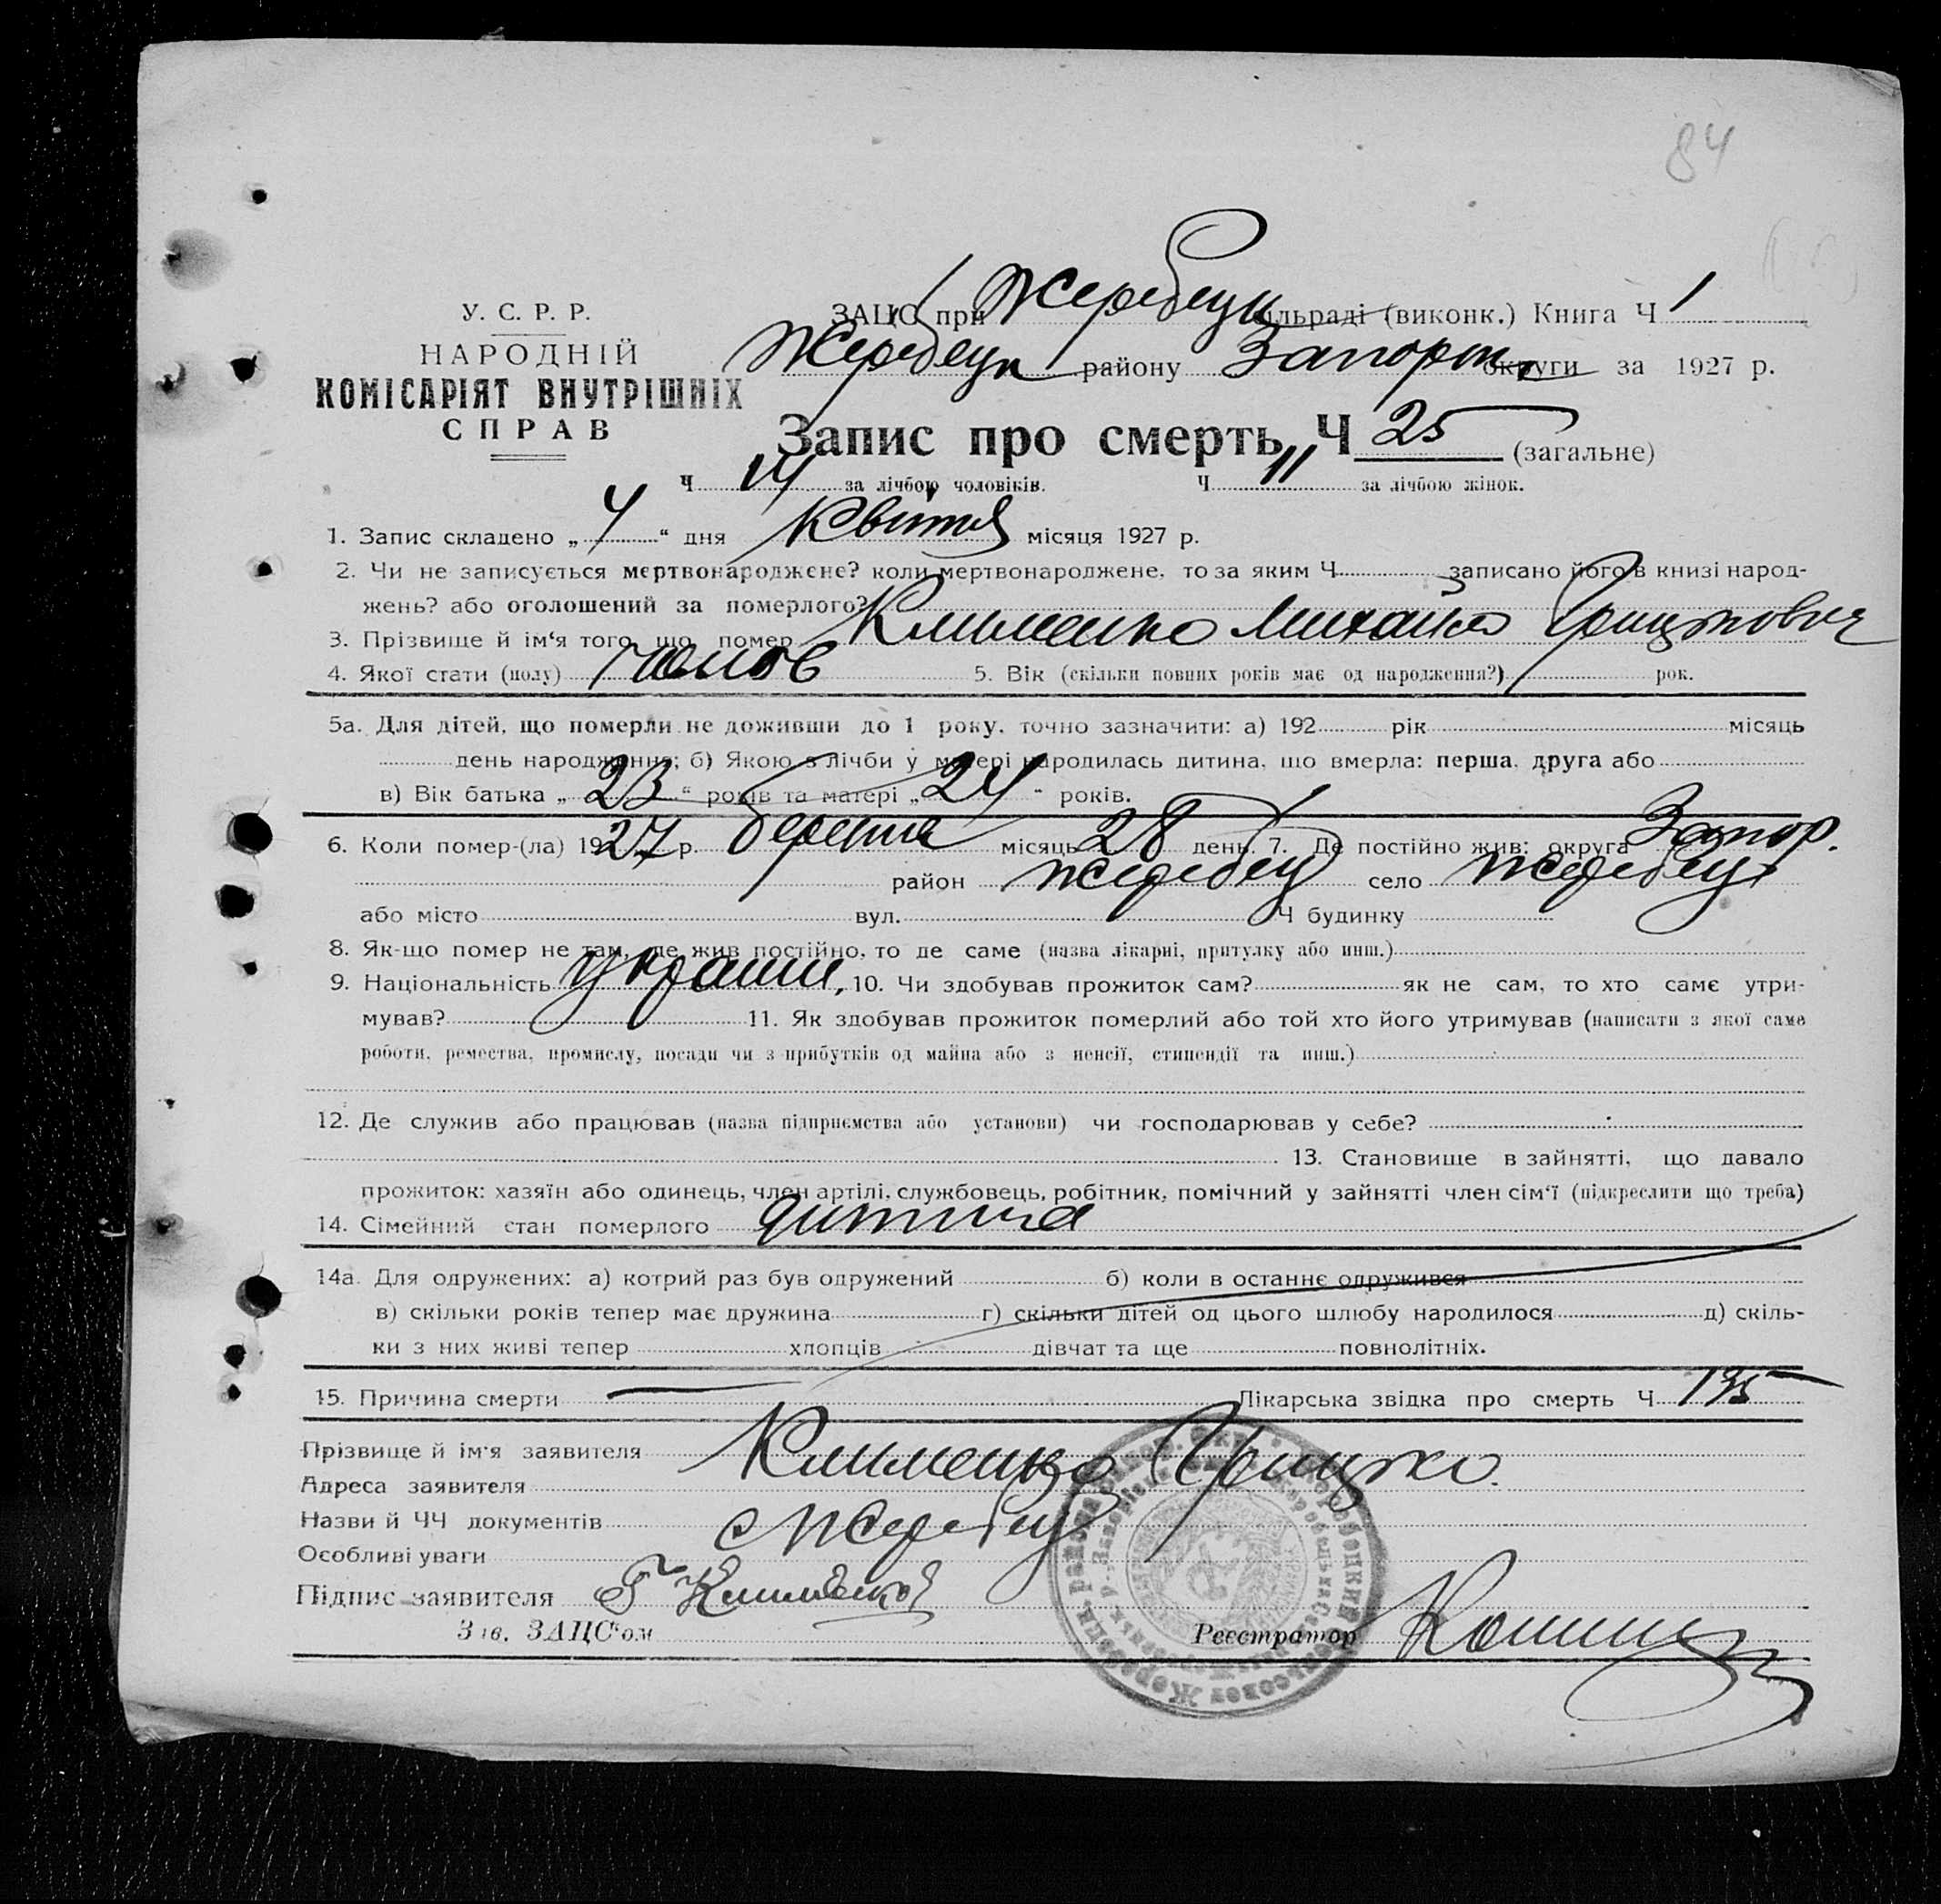 84
У. С. Р. Р.
НАРОДНІЙ
КОМІСАРІЯТ ВНУТРІШНІХ
СПРАВ
ЗАЦС при Жеребецк сільраді (виконк.) Книга Ч 1
Жеребецк району Запоріж. округи за 1927 р.
Запис про смерть Ч 25 (загальне)
Ч 14 за лічбою чоловіків. Ч 11 за лічбою жінок.
1. Запис складено „ 4 “ дня Квітня місяця 1927 р.
2. Чи не записується мертвонароджене? коли мертвонароджене, то за яким Ч записано його в книзі народ-
жень? або оголошений за померлого?
3. Прізвище й ім‘я того, що помер Клименко Михайло Грицькович
4. Якої стати (полу) чолов 5. Вік (скільки повних років має од народження?) рок.
5а. Для дітей, що померли не доживши до 1 року, точно зазначити: а) 192 рік місяць
день народження; б) Якою з лічби у матері народилась дитина, що вмерла: перша, друга або
в) Вік батька „ 23 “ років та матері „ 24 “ років.
6. Коли помер-(ла) 1927 р. березня місяць 28 день. 7. Де постійно жив: округа Запор.
район Жеребец село Жеребец
або місто вул. Ч будинку
8. Як-що помер не там, де жив постійно, то де саме (назва лікарні, притулку або инш.)
9. Національність україн. 10. Чи здобував прожиток сам? як не сам, то хто саме утри-
мував? 11. Як здобував прожиток померлий або той хто його утримував (написати з якої саме
роботи, ремества, промислу, посади чи з прибутків од майна або з пенсії, стипендії та инш.)
12. Де служив або працював (назва підприємства або установи) чи господарював у себе?
13. Становище в зайнятті, що давало
прожиток: хазяїн або одинець, член артілі, службовець, робітник, помічний у зайнятті член сім‘ї (підкреслити що треба)
14. Сімейний стан померлого дитина
14а. Для одружених: а) котрий раз був одружений б) коли в останнє одружився
в) скільки років тепер має дружина г) скільки дітей од цього шлюбу народилося д) скіль-
ки з них живі тепер хлопців дівчат та ще повнолітніх.
15. Причина смерти Лікарська звідка про смерть Ч 195
Прізвище й ім‘я заявителя Клименко Грицько.
Адреса заявителя
Назви й ЧЧ документів с Жеребец
Особливі уваги
Підпис заявителя Г Клименко
Зав. ЗАЦС‘ом Реєстратор